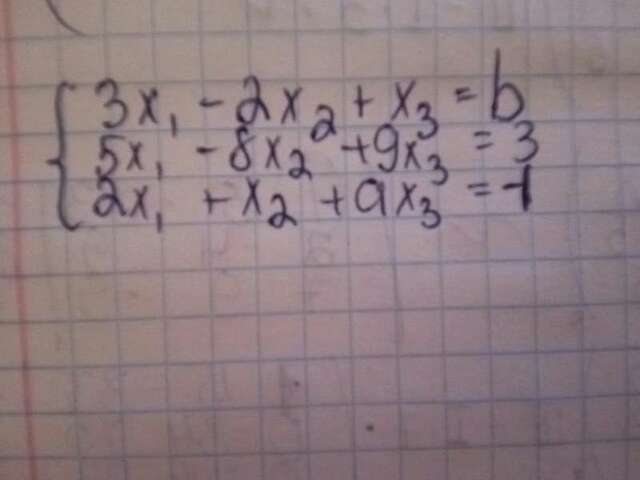 3x₁ - 2x₂ + x₃ = b
5x₁ - 8x₂ + 9x₃ = 3
2x₁ + x₂ + ax₃ = -1